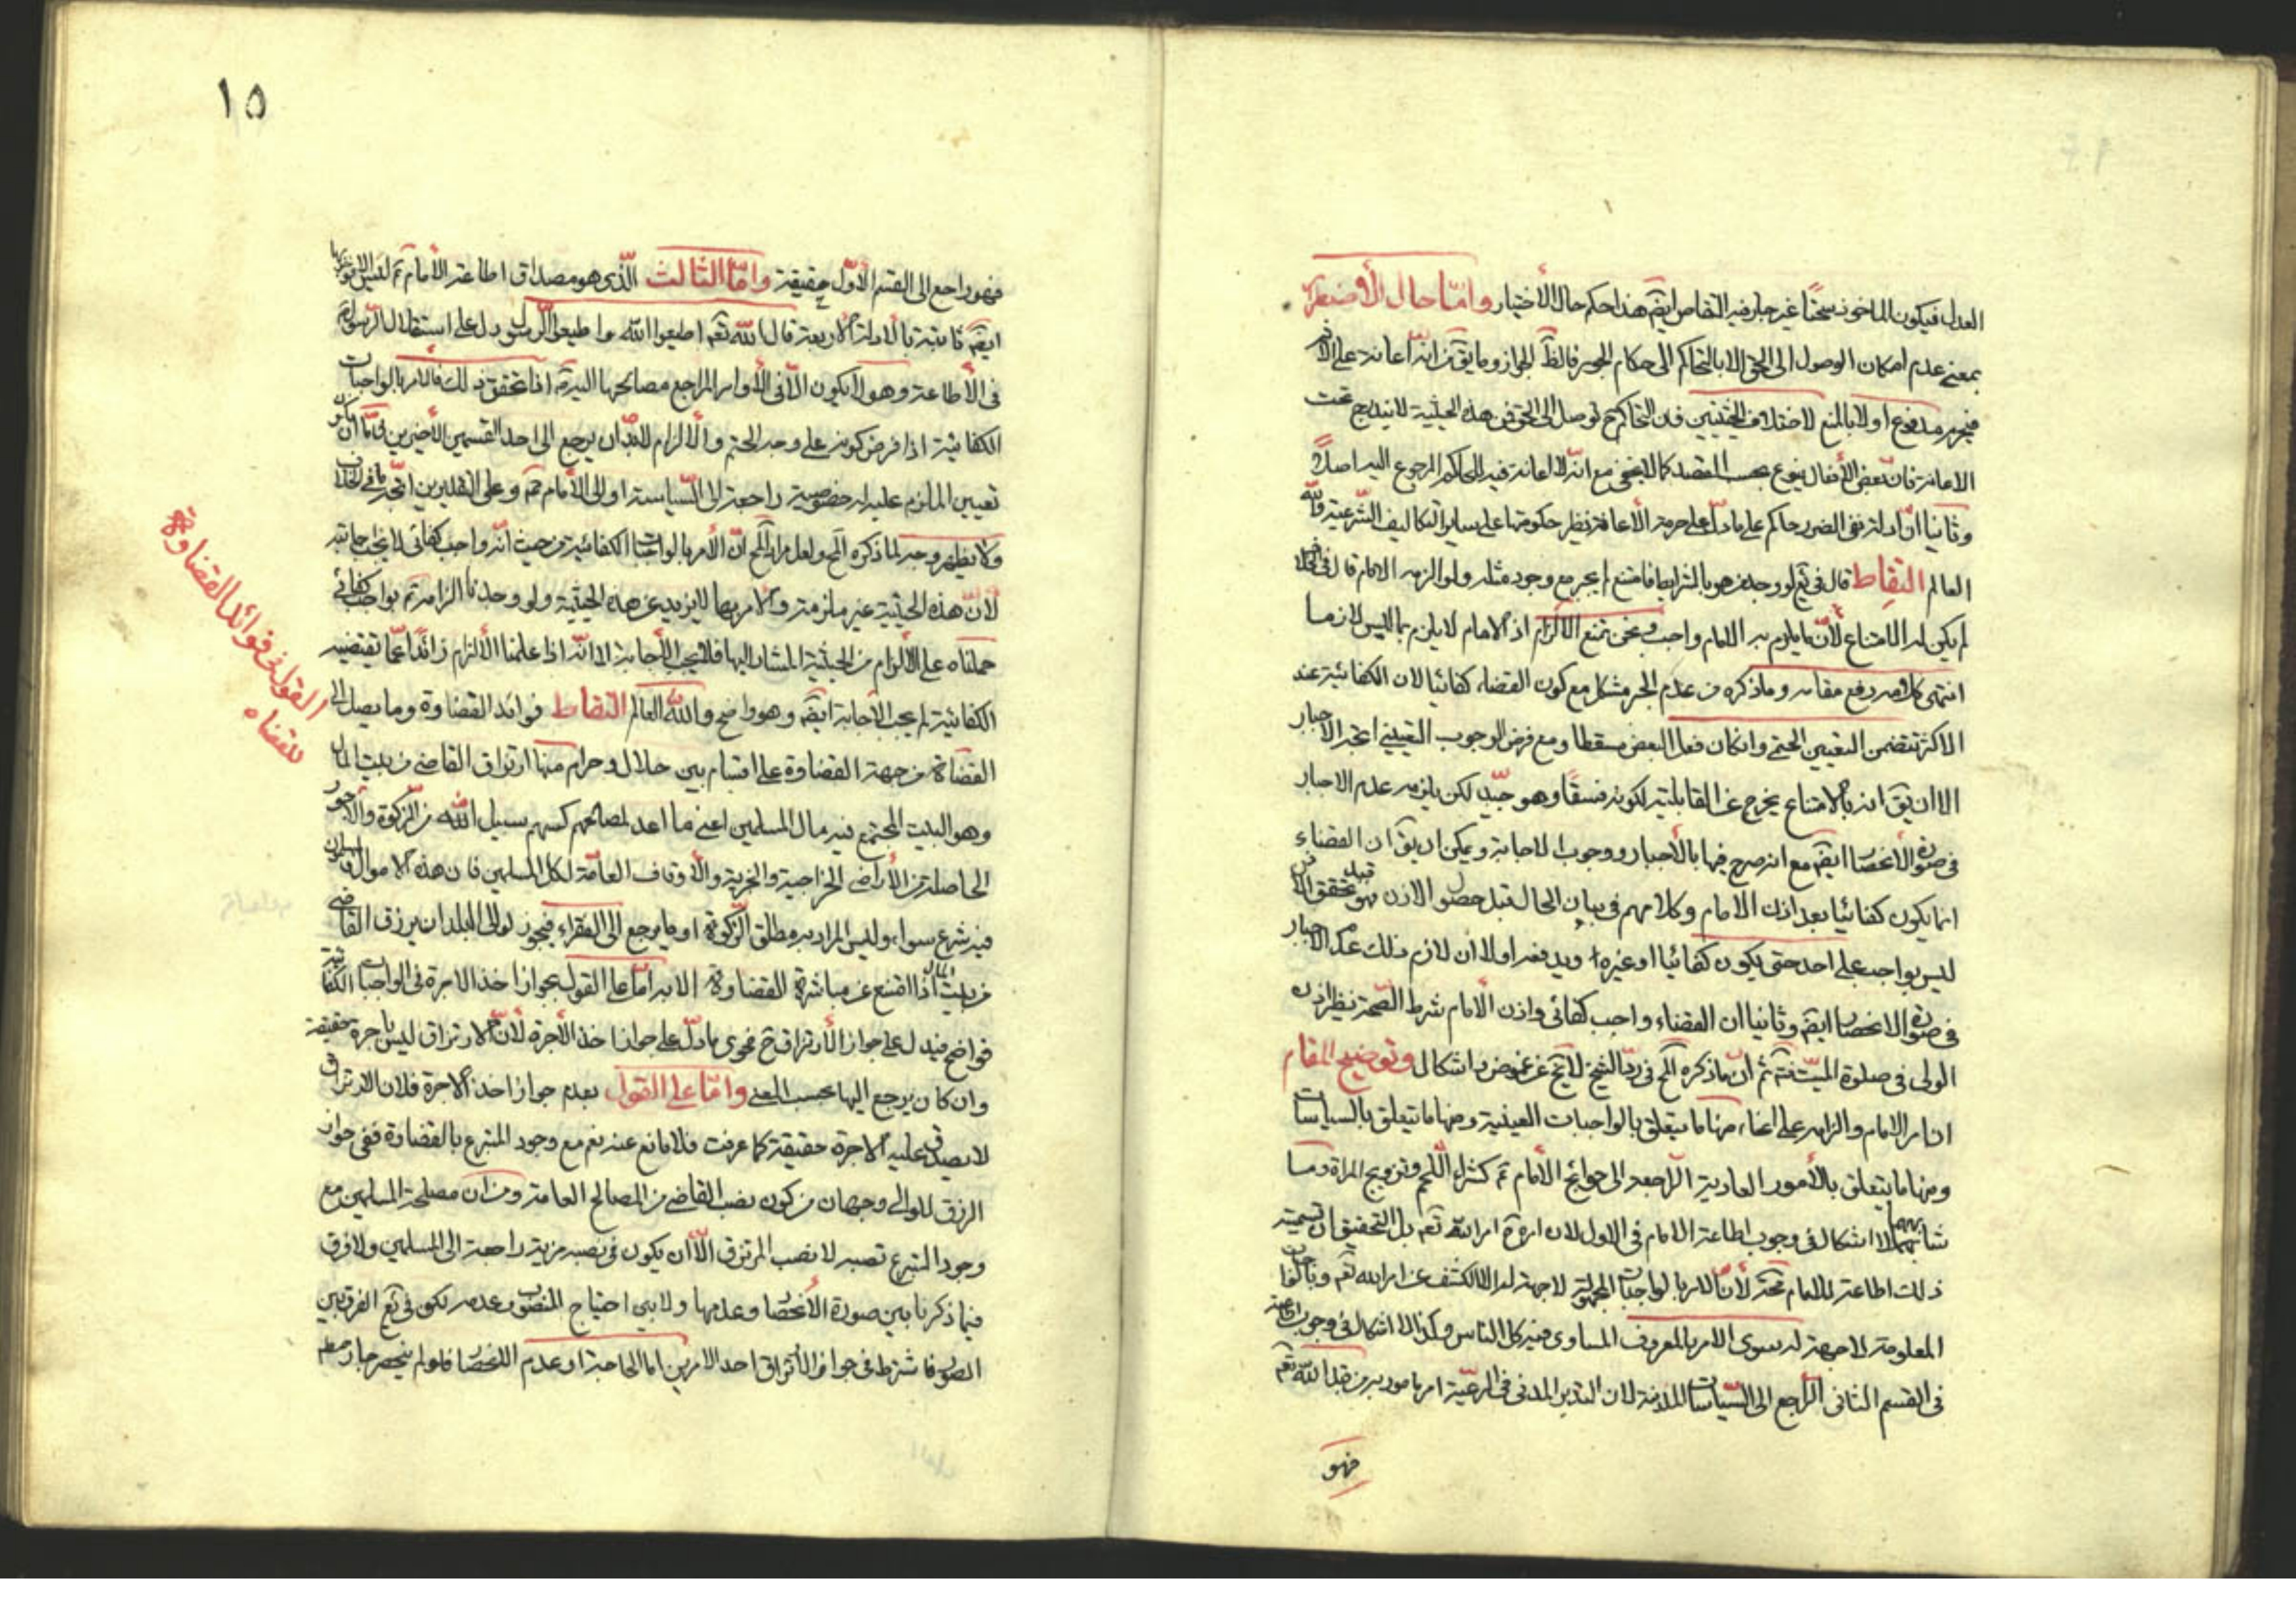 العدل فيكون الماخوذ سحتًا غير جار فيه التقاص ايضًا هذا حكم حال الأختيار وامّا حال الأضطرار
بمعنى عدم امكان الوصول الى الحق الا بالتحاكم الى حكام الجور فالظ الجواز وما يق من انه اعانة على الاثم
فيحرم مدفوع اولا بالمنع لاختلاف الحيثيتين فان التحاكم ح توصل الى الحق فمن هذه الحيثية لا يندرج تحت
الاعانة فان بعض الأفعال ينوع بحسب القصد كما لا يخفى مع انه لا اعانة فيه للحاكم المرجوع اليه اصلاً
وثانيا انّ ادلة نفى الضرر حاكم على ما دلّ على حرمة الأعانة نظير حكومتها على ساير التكاليف الشّرعية والله
العالم التقاط قال فى يع لو وجد من هو بالشرايط فامتنع لم يجبر مع وجود مثله ولو الزمه الامام قال فى الخلاف
لم يكن له الامتناع لأنّ ما يلزم به الامام واجب ونحن نمنع الالزام اذ الامام لا يلزم بما ليس لازما
انتهى كلامه رفع مقامه وما ذكره من عدم الجبر مشكل مع كون القضاء كفائيا لان الكفائية عند
الاكثر تتضمن التعيين الحتمى وان كان فعل البعض مسقطا ومع فرض الوجوب التعيينى اتجه الاجبار
الا ان يق انه بالامتناع يخرج عن القابلية لكونه فسقًا وهو جيّد لكن يلزمه عدم الاجبار
فى صورة الانحصار ايضًا مع انه صرح فيها بالأجبار ووجوب الاجابة ويمكن ان يق ان القضاء
انما يكون كفائيا بعد اذن الامام وكلامهم فى بيان الحال قبل حصول الاذن فهو قبل تحقق الاذن
ليس بواجب على احد حتى يكون كفائيا او غيره ويدفعه اولا ان لازم ذلك عدم الاجبار
فى صورة الانحصار ايضًا وثانيا ان القضاء واجب كفائى واذن الأمام شرط الصحّة نظير اذن
الولى فى صلوة الميّت فتم ثم انّ ما ذكره المح فى ردّ الشيخ لا يخ عن غموض واشكال وتوضيح المقام
ان امر الامام والزامه على انحاء منها ما يتعلق بالواجبات العينية ومنها ما يتعلق بالسياسات
ومنها ما يتعلق بالأمور العادية الراجعة الى حوائج الأمام ع كشراء اللّحم وتزويج المراة وما
شابههما لا اشكال فى وجوب اطاعة الامام فى الاول لان امره امر الله تعم بل التحقيق ان تسمية
ذلك اطاعة للامام تجوّز لأنّ الامر بالواجبات المجهولة لا جهة له الا الكشف عن امر الله تعم وبالواجبات
المعلومة لا جهة له سوى الامر بالمعروف المساوى فيه كل الناس وكذا لا اشكال فى وجوب اطاعته
فى القسم الثانى الرّاجع الى السّياسات المدنية لان التدبير المدنى فى الرعيّة امر مامور به من قبل الله تعم
فهو
١٥
فهو راجع الى القسم الأوّل حقيقة وامّا الثالث الّذى هو مصداق اطاعة الأمام ع ليس الا فوجوبها
ايضًا ثابتة بالادلة الاربعة قال الله تعم اطيعوا الله واطيعوا الرّسول دل على استقلال الرّسول ص
فى الأطاعة وهو لا يكون الّا فى الأوامر الراجع مصالحها اليه اذا تحقق ذلك فالامر بالواجبات
الكفائية اذا فرض كونه على وجه الحتم والالزام لابدّ ان يرجع الى احد القسمين الأخيرين
تعيين الملزم عليه له خصوصية راجعة الى السّياسة او الى الأمام ع وعلى التقديرين اتّجه ما فى الخلاف
ولا يظهر وجه لما ذكره المح ولعل مراد المح انّ الأمر بالواجبات الكفائية من حيث انّه واجب كفائى لا يجب اجابته
لأنّ هذه الحيثية غير ملزمة والامر بها لا يزيد عن هذه الحيثية ولو وجدنا الزامه ع بواجب كفائى
حملناه على الألزام من الحيثية المشار اليها فلا يجب الأجابة الا انّه اذا علمنا الألزام زائدًا عمّا تقتضيه
الكفائية لم يجب الأجابة ايضًا وهو واضح والله العالم التقاط فوائد القضاوة وما يصل الى
القضاة من جهة القضاوة على اقسام بين حلال وحرام منها ارتزاق القاضى من بيت المال
وهو البيت المجتمع فيه مال المسلمين اعنى ما اعد لمصالحهم كسهم سبيل الله من الزكوة والاجور
الحاصلة من الأراضى الخراجية والجزية والأوقاف العامّة لكل المسلمين فان هذه الاموال المسلمون
فيه شرع سواء وليس المراد به مطلق الزّكوة او ما يرجع الى الفقراء فيجوز لوالى البلد ان يرزق القاضى
من بيت المال اذا امتنع عن مباشرة القضاوة الا به امّا على القول بجواز اخذ الاجرة فى الواجبات الكفائية
فواضح فيدل على جواز الأرتزاق ح فحوى ما دلّ على جواز اخذ الأجرة لأنّ الارتزاق ليس باجرة حقيقة
وان كان يرجع اليها بحسب المعنى وامّا على القول بعدم جواز اخذ الاجرة فلان الارتزاق
لا يصدق عليه الاجرة حقيقة كما عرفت فلا مانع عنه نعم مع وجود المتبرع بالقضاوة ففى جواز
الرزق للوالى وجهان من كون نصب القاضى من المصالح العامة ومن ان مصلحة المسلمين مع
وجود المتبرع نصبه لا نصب المرتزق الّا أن يكون فى نصبه مزية راجعة الى المسلمين ولا فرق
فيما ذكرنا بين صورة الأنحصار وعدمها ولا بين احتياج المنصوب وعدمه لكن فى يع الفرق بين
الصور فاشترط فى جواز الأرتزاق احد الامرين اما الحاجة او عدم الانحصار فلو لم ينحصر جاز مطلقا
القول فى فوائد القضاوة
للقضاه